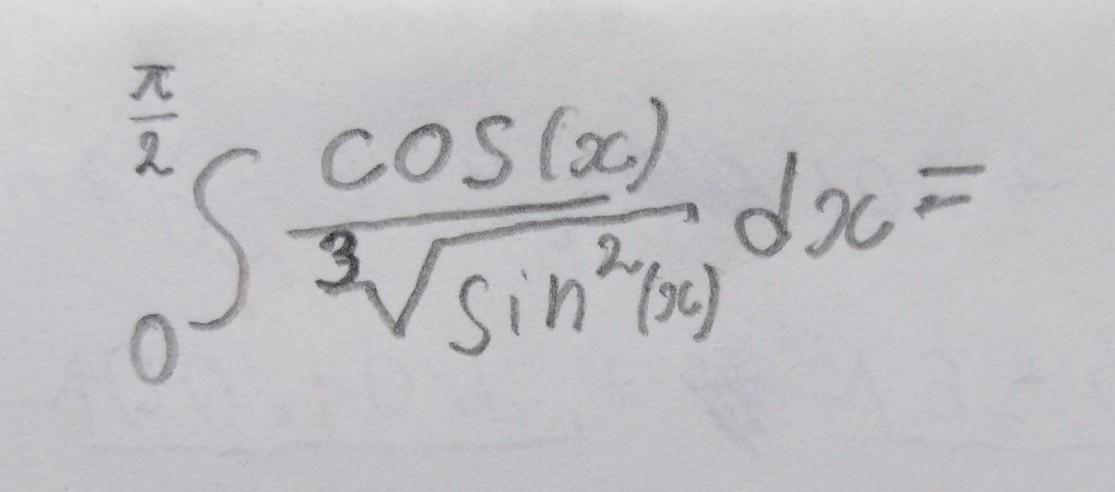 ∫_0^{π/2} cos(x) / ∛(sin²(x)) dx =